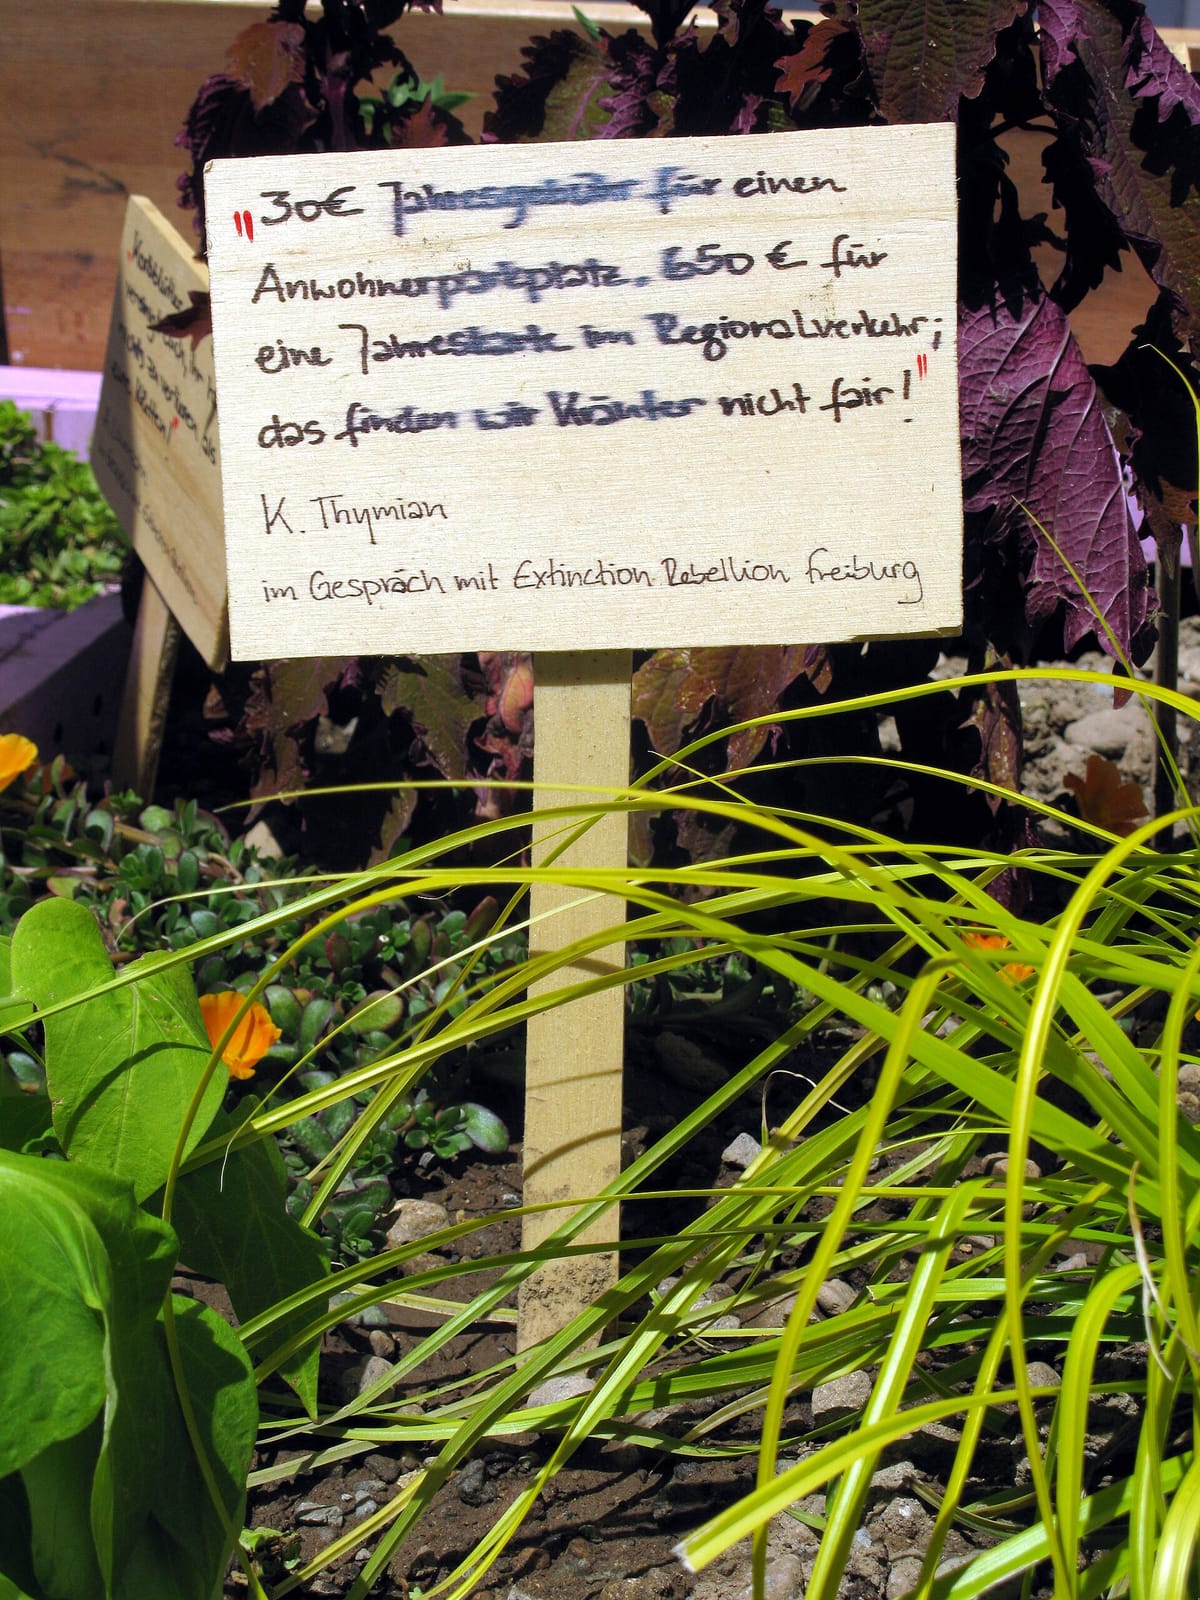 "30€ Jahresgebühr für einen
Anwohnerparkplatz, 650 € für
eine Jahreskarte im Regionalverkehr;
das finden wir Kräuter nicht fair!"
K. Thymian
im Gespräch mit Extinction Rebellion freiburg